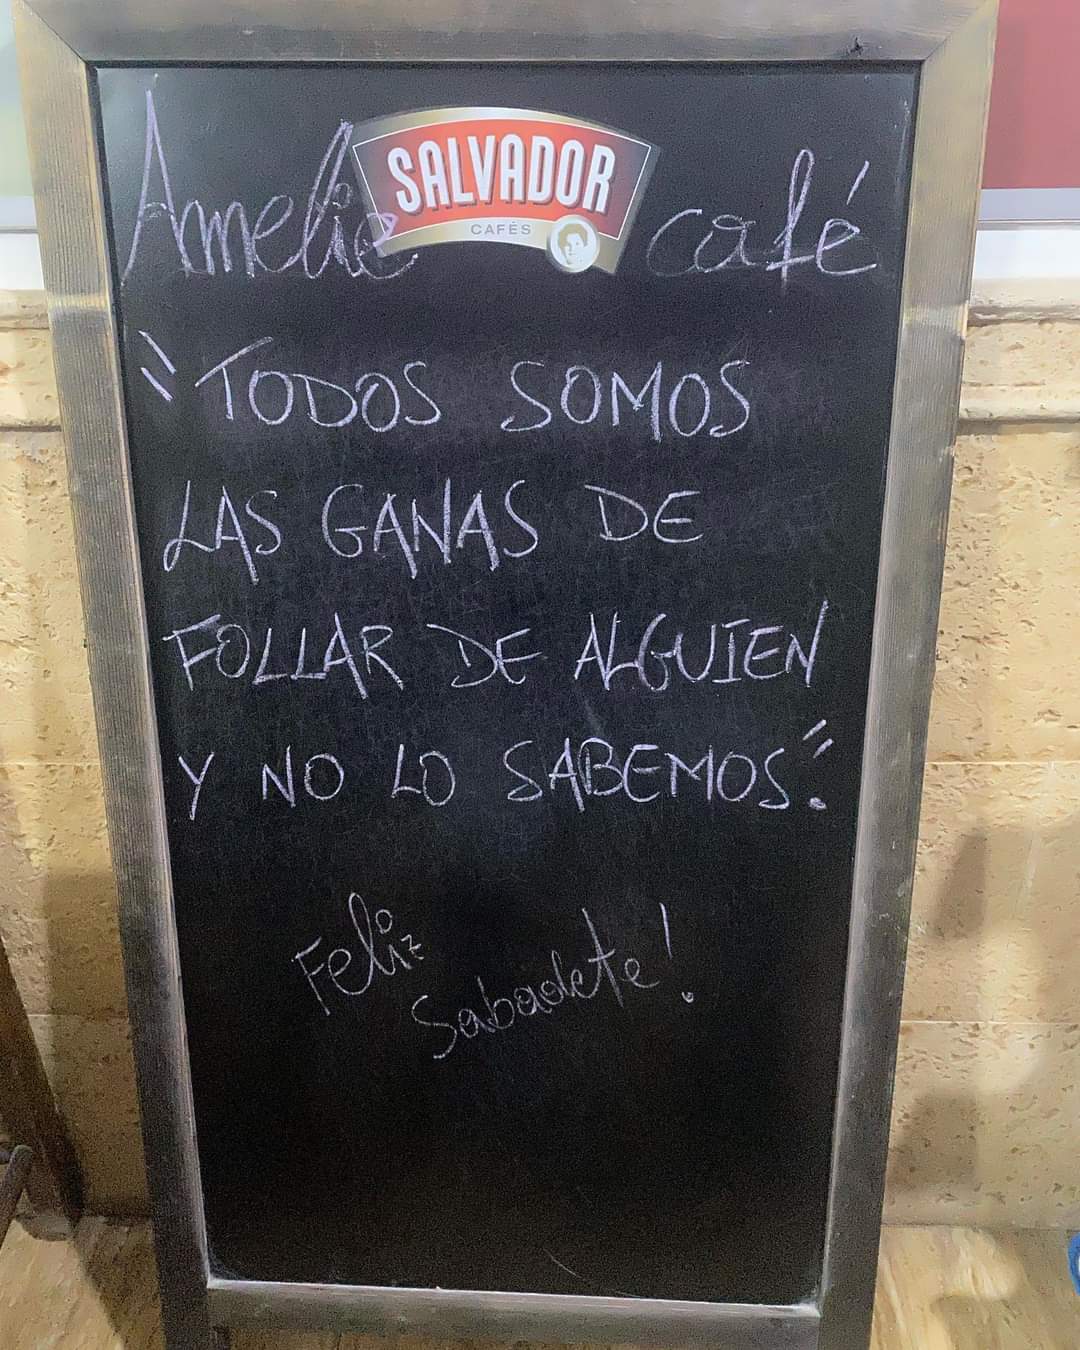 SALVADOR
CAFÉS
Amelie café
"TODOS SOMOS
LAS GANAS DE
FOLLAR DE ALGUIEN
Y NO LO SABEMOS".
Feliz
Sabadete!